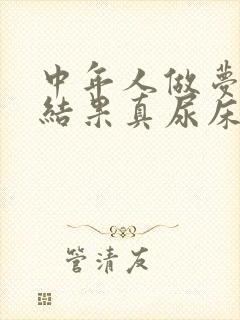 中年人做夢
結果真尿床
管清友